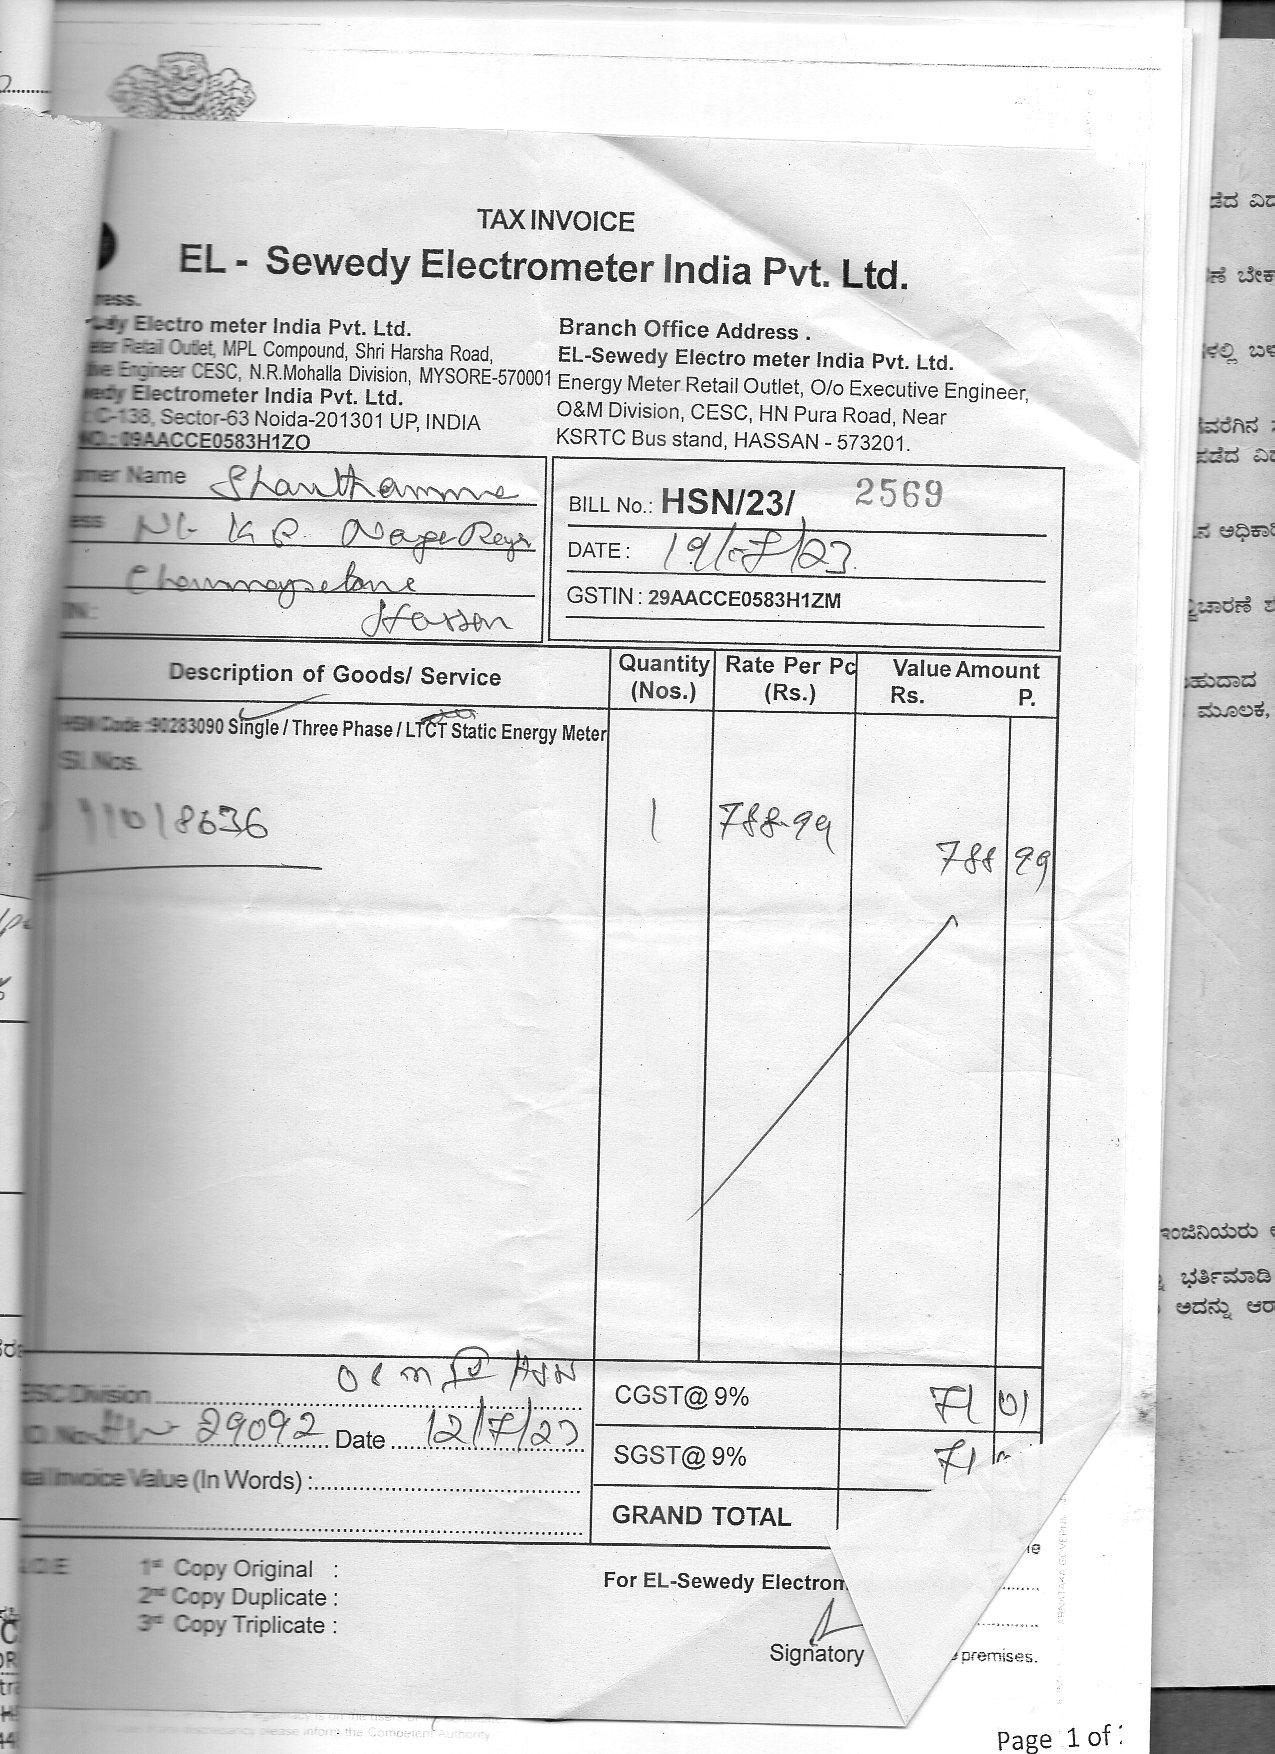 TAX INVOICE
EL - Sewedy Electrometer India Pvt. Ltd.
ress.
Electro meter India Pvt. Ltd.
Retail Outlet, MPL Compound, Shri Harsha Road,
Engineer CESC, N.R.Mohalla Division, MYSORE-570001
Electrometer India Pvt. Ltd.
C-138, Sector-63 Noida-201301 UP, INDIA
09AACCE0583H1ZO
Branch Office Address .
EL-Sewedy Electro meter India Pvt. Ltd.
Energy Meter Retail Outlet, O/o Executive Engineer,
O&M Division, CESC, HN Pura Road, Near
KSRTC Bus stand, HASSAN - 573201.
mer Name Shanthamma
ess
Hassan
BILL No.: HSN/23/ 2569
DATE : 19/07/23
GSTIN : 29AACCE0583H1ZM
Description of Goods/ Service Quantity (Nos.) Rate Per Pc (Rs.) Value Amount Rs. P.
HSN Code :90283090 Single / Three Phase / LTCT Static Energy Meter
Sl. Nos.
11018636 1 788.99 788 99
ESC Division
29092 Date 12/7/23
tal Invoice Value (In Words) :
CGST@ 9% 71 01
SGST@ 9% 71
GRAND TOTAL
1st Copy Original :
2nd Copy Duplicate :
3rd Copy Triplicate :
For EL-Sewedy Electrom
Signatory
premises.
please inform the Competent Authority
Page 1 of
ಡೆದ
ಬೇಕ
ಗಳಲ್ಲಿ
ಪಡೆದ
ಅಧಿಕಾರಿ
ಹುದಾದ
ಮೂಲಕ,
ಇಂಜಿನಿಯರು
ಭರ್ತಿಮಾಡಿ
ಅದನ್ನು